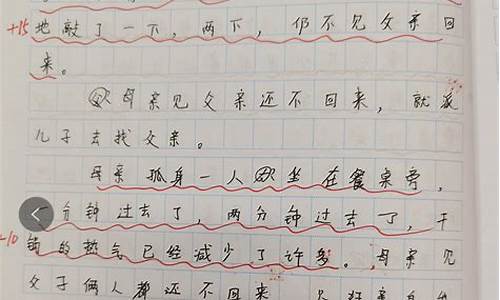 +15 地敲了一下，两下，仍不见父亲回
来。
母亲见父亲还不回来，就派
儿子去找父亲。
母亲孤身一人坐在餐桌旁，
分钟过去了，两分钟过去了，干
+10 锅的热气已经减少了许多。母亲见
父子俩人都还不回来